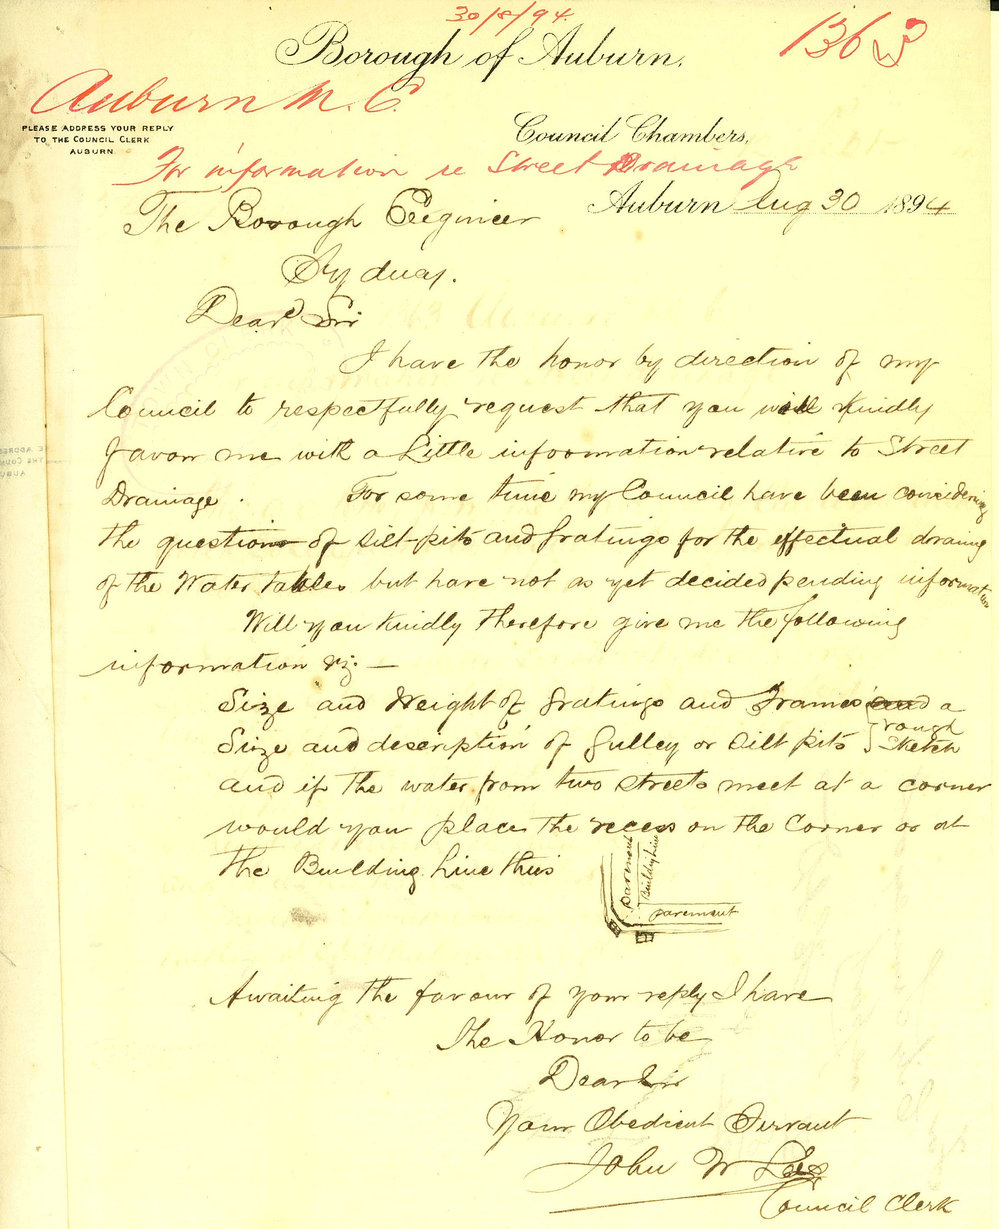 30/8/94.
1363
Borough of Auburn.
Auburn M. C.
PLEASE ADDRESS YOUR REPLY
TO THE COUNCIL CLERK
AUBURN.
Council Chambers,
For information re Street Drainage
Auburn Aug 30 1894
The Borough Engineer
Sydney.
Dear Sir
I have the honor by direction of my
Council to respectfully request that you will kindly
favour me with a little information relative to Street
Drainage. For some time my Council have been considering
the question of silt-pits and gratings for the effectual draining
of the Water tables but have not as yet decided pending information
Will you kindly therefore give me the following
information viz: —
Size and Weight of gratings and Frames and a
rough
Size and description of gulley or silt pits sketch
and if the water from two streets meet at a corner
would you place the recess on the Corner or at
the Building line thus
pavement
Building line
pavement
Awaiting the favour of your reply I have
the Honor to be
Dear Sir
Your Obedient Servant
John W
Council Clerk